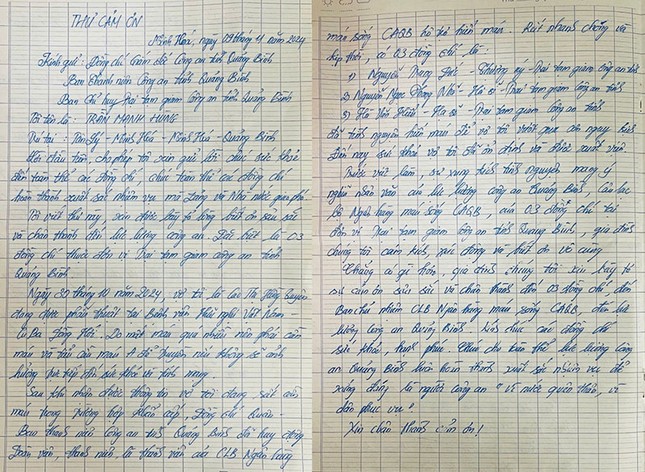 THƯ CẢM ƠN
Minh Hoá, ngày 09 tháng 11 năm 2024
Kính gửi: Đồng chí Giám đốc Công an tỉnh Quảng Bình
Ban Thanh niên Công an tỉnh Quảng Bình
Ban chỉ huy Trại tạm giam Công an tỉnh Quảng Bình
Tôi tên là: TRẦN MẠNH HÙNG
Trú tại: Tân Lý - Minh Hoá - Minh Hoá - Quảng Bình
Lời đầu tiên, cho phép tôi xin gửi lời chúc sức khỏe
đến toàn thể các đồng chí, chúc toàn thể các đồng chí
hoàn thành xuất sắc nhiệm vụ mà Đảng và Nhà nước giao phó.
Tôi viết thư này, xin được bày tỏ lòng biết ơn sâu sắc
và chân thành đến lực lượng công an. Đặc biệt là 03
đồng chí thuộc đơn vị Trại tạm giam công an tỉnh
Quảng Bình.
Ngày 30 tháng 10 năm 2024, vợ tôi là Cao Thị Hồng
đang được phẫu thuật tại Bệnh viện Hữu nghị Việt Nam -
Cu Ba Đồng Hới. Do mất máu quá nhiều nên phải cần
máu và tiểu cầu máu A để truyền nếu không sẽ ảnh
hưởng trực tiếp đến sức khỏe và tính mạng.
Sau khi nhận được thông tin vợ tôi đang rất cần
máu trong trường hợp khẩn cấp, Đồng chí
Ban thanh niên Công an tỉnh Quảng Bình đã huy động
Đoàn viên, thanh niên là thành viên của CLB Ngân hàng
máu sống CAQB hỗ trợ hiến máu. Rất nhanh chóng và
kịp thời, có 03 đồng chí là:
1) Nguyễn Trung - Thượng úy - Trại tạm giam công an tỉnh
2) Nguyễn Ngọc - Hạ sĩ - Trại tạm giam công an tỉnh
3) Hồ Văn - Hạ sĩ - Trại tạm giam công an tỉnh
đã tình nguyện hiến máu để vợ tôi vượt qua cơn nguy kịch
Đến nay sức khỏe vợ tôi đã ổn định và được xuất viện.
Trước việc làm, sự xung kích tình nguyện mang ý
nghĩa nhân văn của lực lượng công an Quảng Bình, Câu lạc
bộ Ngân hàng máu sống CAQB, của 03 đồng chí tại
đơn vị Trại tạm giam công an tỉnh Quảng Bình, gia đình
chúng tôi cảm kích, xúc động và biết ơn vô cùng.
Chẳng có gì hơn, gia đình chúng tôi xin bày tỏ
sự cảm ơn sâu sắc và chân thành đến 03 đồng chí, đến
Ban chủ nhiệm CLB Ngân hàng máu sống CAQB, đến lực
lượng Công an Quảng Bình. Kính chúc các đồng chí
sức khỏe, hạnh phúc. Chúc cho toàn thể lực lượng Công
an Quảng Bình luôn hoàn thành xuất sắc nhiệm vụ để
xứng đáng là người công an "Vì nước quên thân, vì
dân phục vụ".
Xin chân thành cảm ơn!